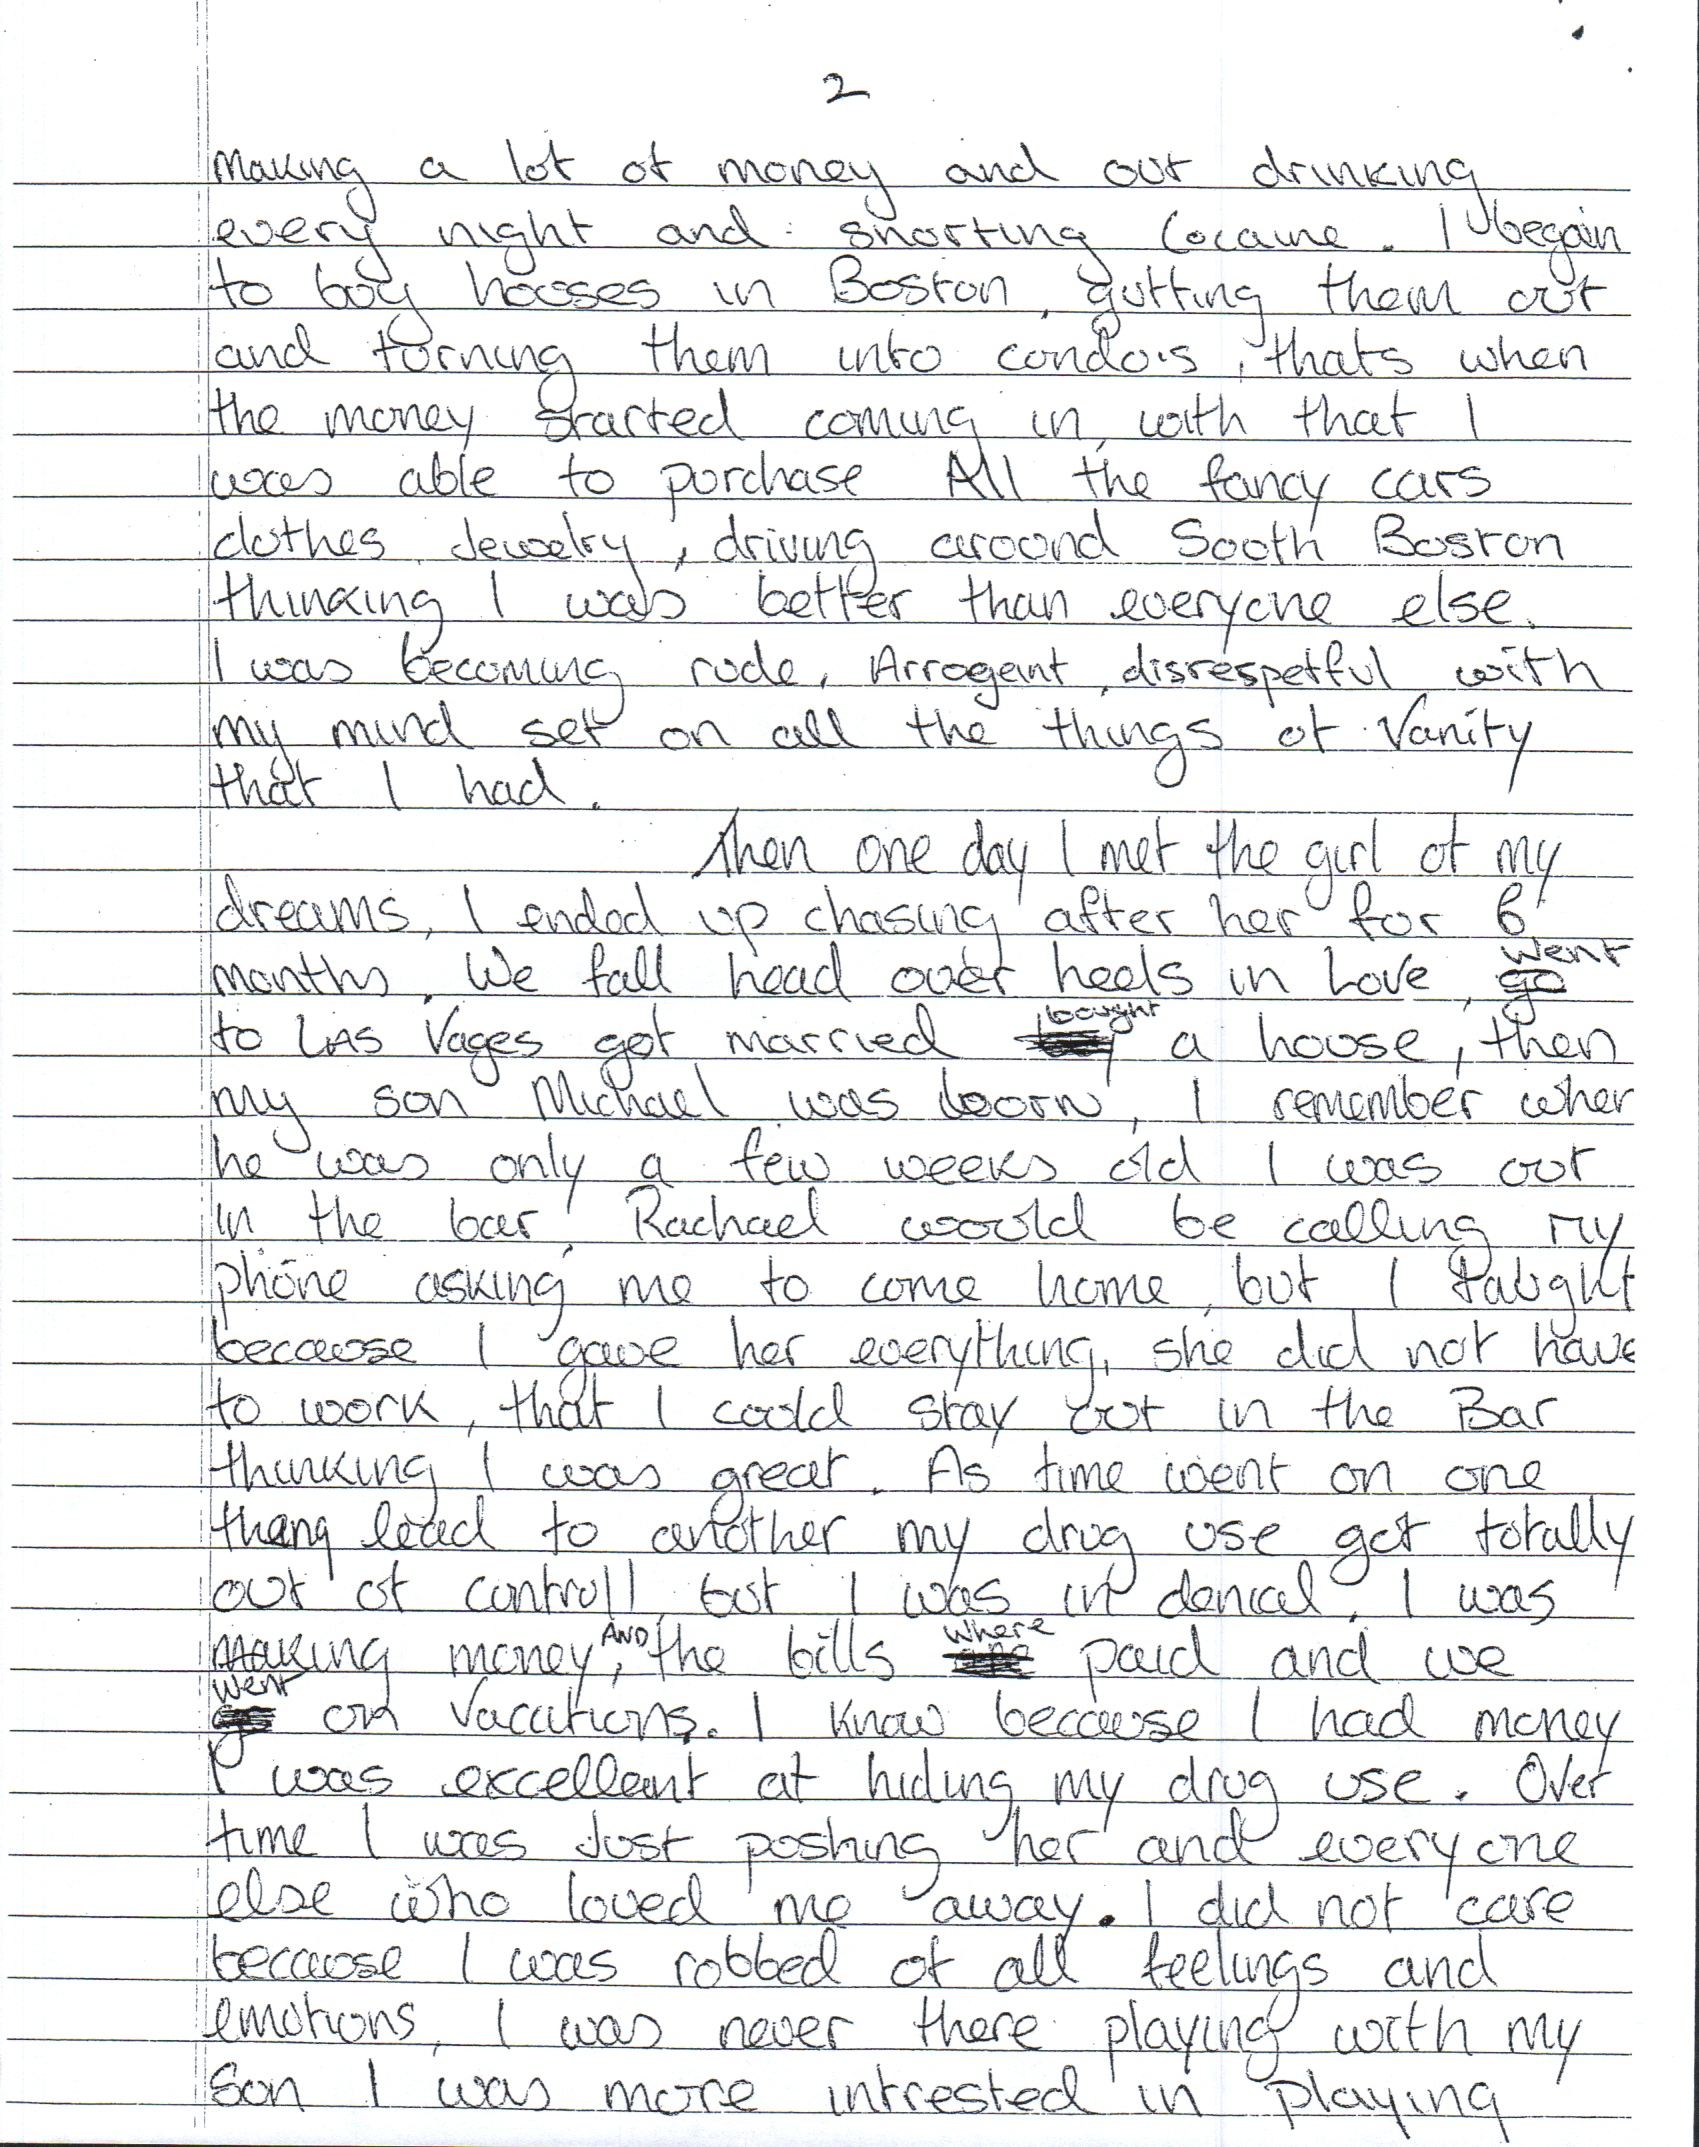 2
Making a lot of money and out drinking
every night and snorting Cocaine. I begain
to buy houses in Boston, gutting them out
and turning them into condo's, thats when
the money started coming in, with that I
was able to purchase All the fancy cars
clothes, Jewelry, driving around South Boston
thinking I was better than everyone else.
I was becoming rude, Arrogent, disrespetful with
my mind set on all the things of Vanity
that I had.
Then one day I met the girl of my
dreams, I ended up chasing after her for 6
months. We fall head over heels in Love, went
to LAS Vages got married bought a house, then
my son Michael was boorn, I remember when
he was only a few weeks old I was out
in the bar, Rachael would be calling my
phone asking me to come home, but I taught
because I gave her everything, she did not have
to work, that I could stay out in the Bar
thinking I was great. As time went on one
thang lead to another my drug use got totally
out of controll, but I was in denial. I was
making money, AND the bills where paid and we
went on vacations. I know because I had money
I was excellent at hiding my drug use. Over
time I was Just pushing her and everyone
else who loved me away. I did not care
because I was robbed of all feelings and
emotions, I was never there playing with my
Son I was more intrested in playing